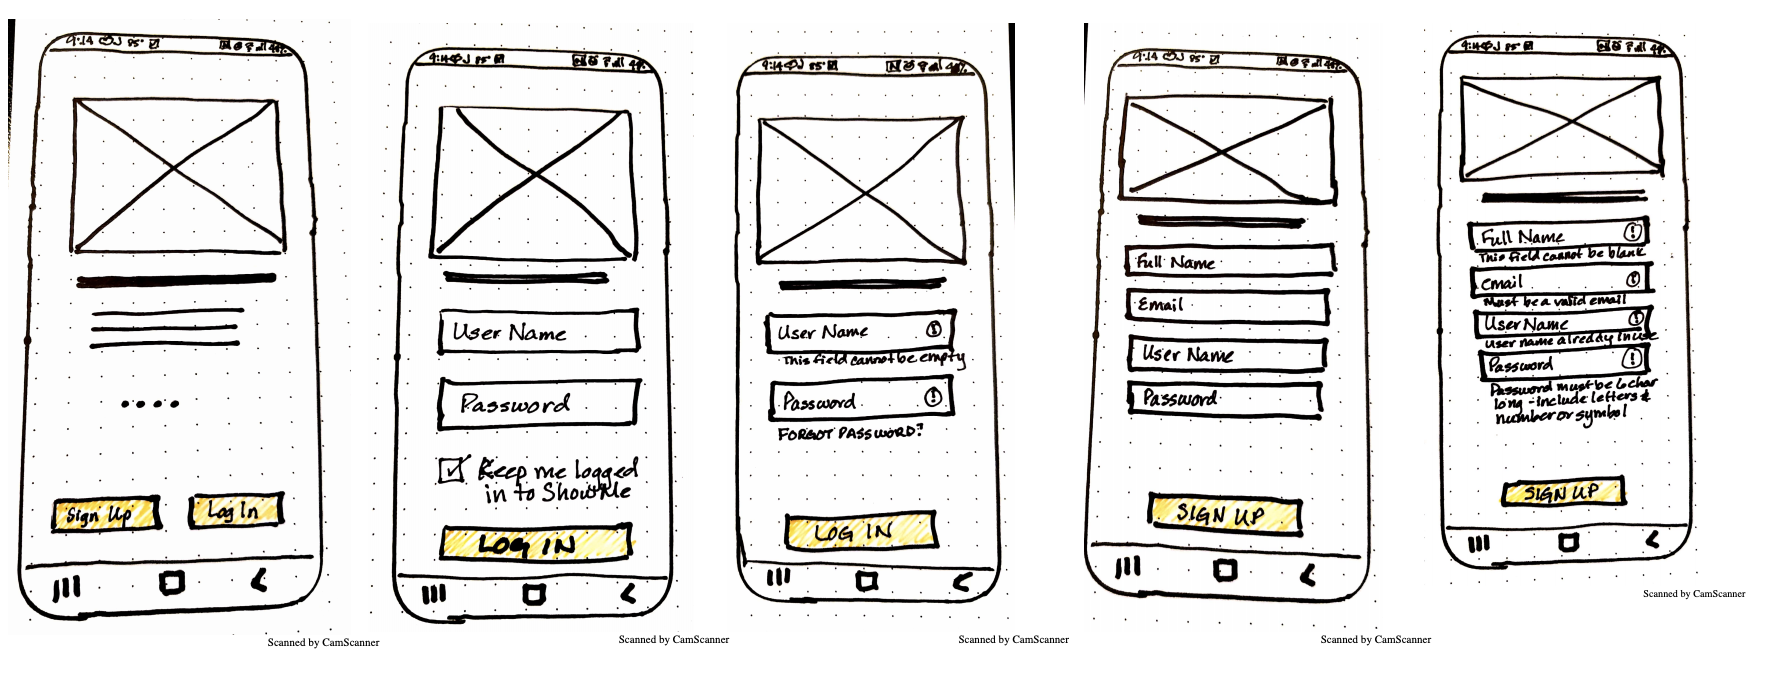 9:14 85°
4%
Sign Up
Log In
Scanned by CamScanner
9:14 85°
4%
User Name
Password
Keep me logged
in to ShowMe
LOG IN
Scanned by CamScanner
9:14 85°
User Name
This field cannot be empty
Password
FORGOT PASSWORD?
LOG IN
Scanned by CamScanner
9:14 85°
Full Name
Email
User Name
Password
SIGN UP
Scanned by CamScanner
9:14 85°
Full Name
This field cannot be blank
Email
Must be a valid email
User Name
User name alreddy in use
Password
Password must be 6 char
long - include letters &
number or symbol
SIGN UP
Scanned by CamScanner